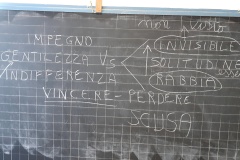 non visto
IMPEGNO
INVISIBILE
GENTILEZZA VS SOLITUDINE
INDIFFERENZA
RABBIA
VINCERE - PERDERE
SCUSA